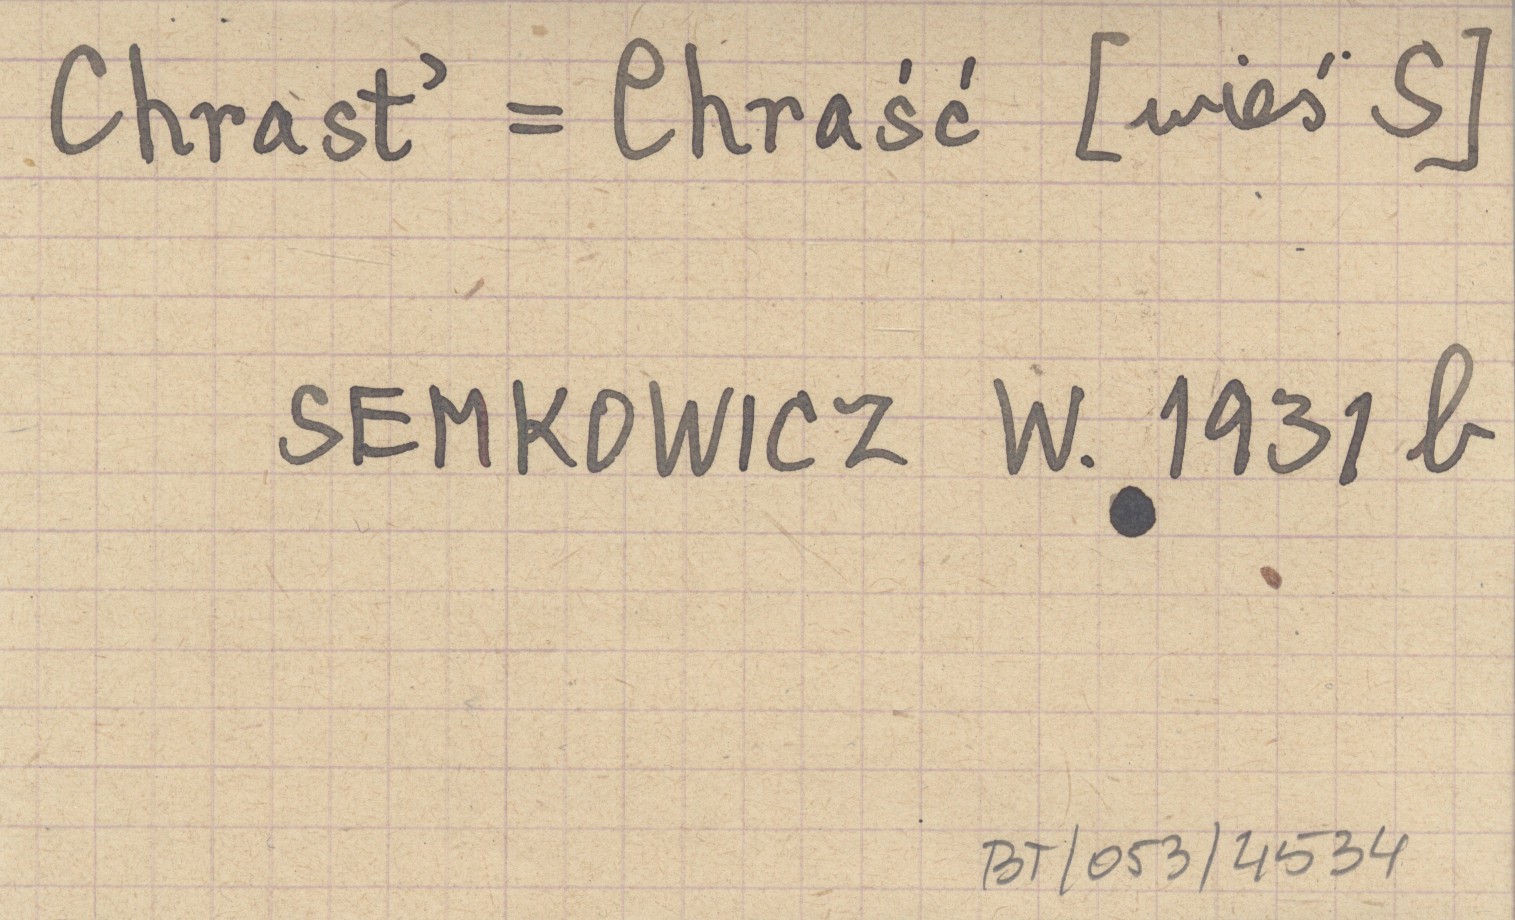 Chrast' = Chraść [wieś S]
SEMKOWICZ W. 1931 b
BT/053/4534